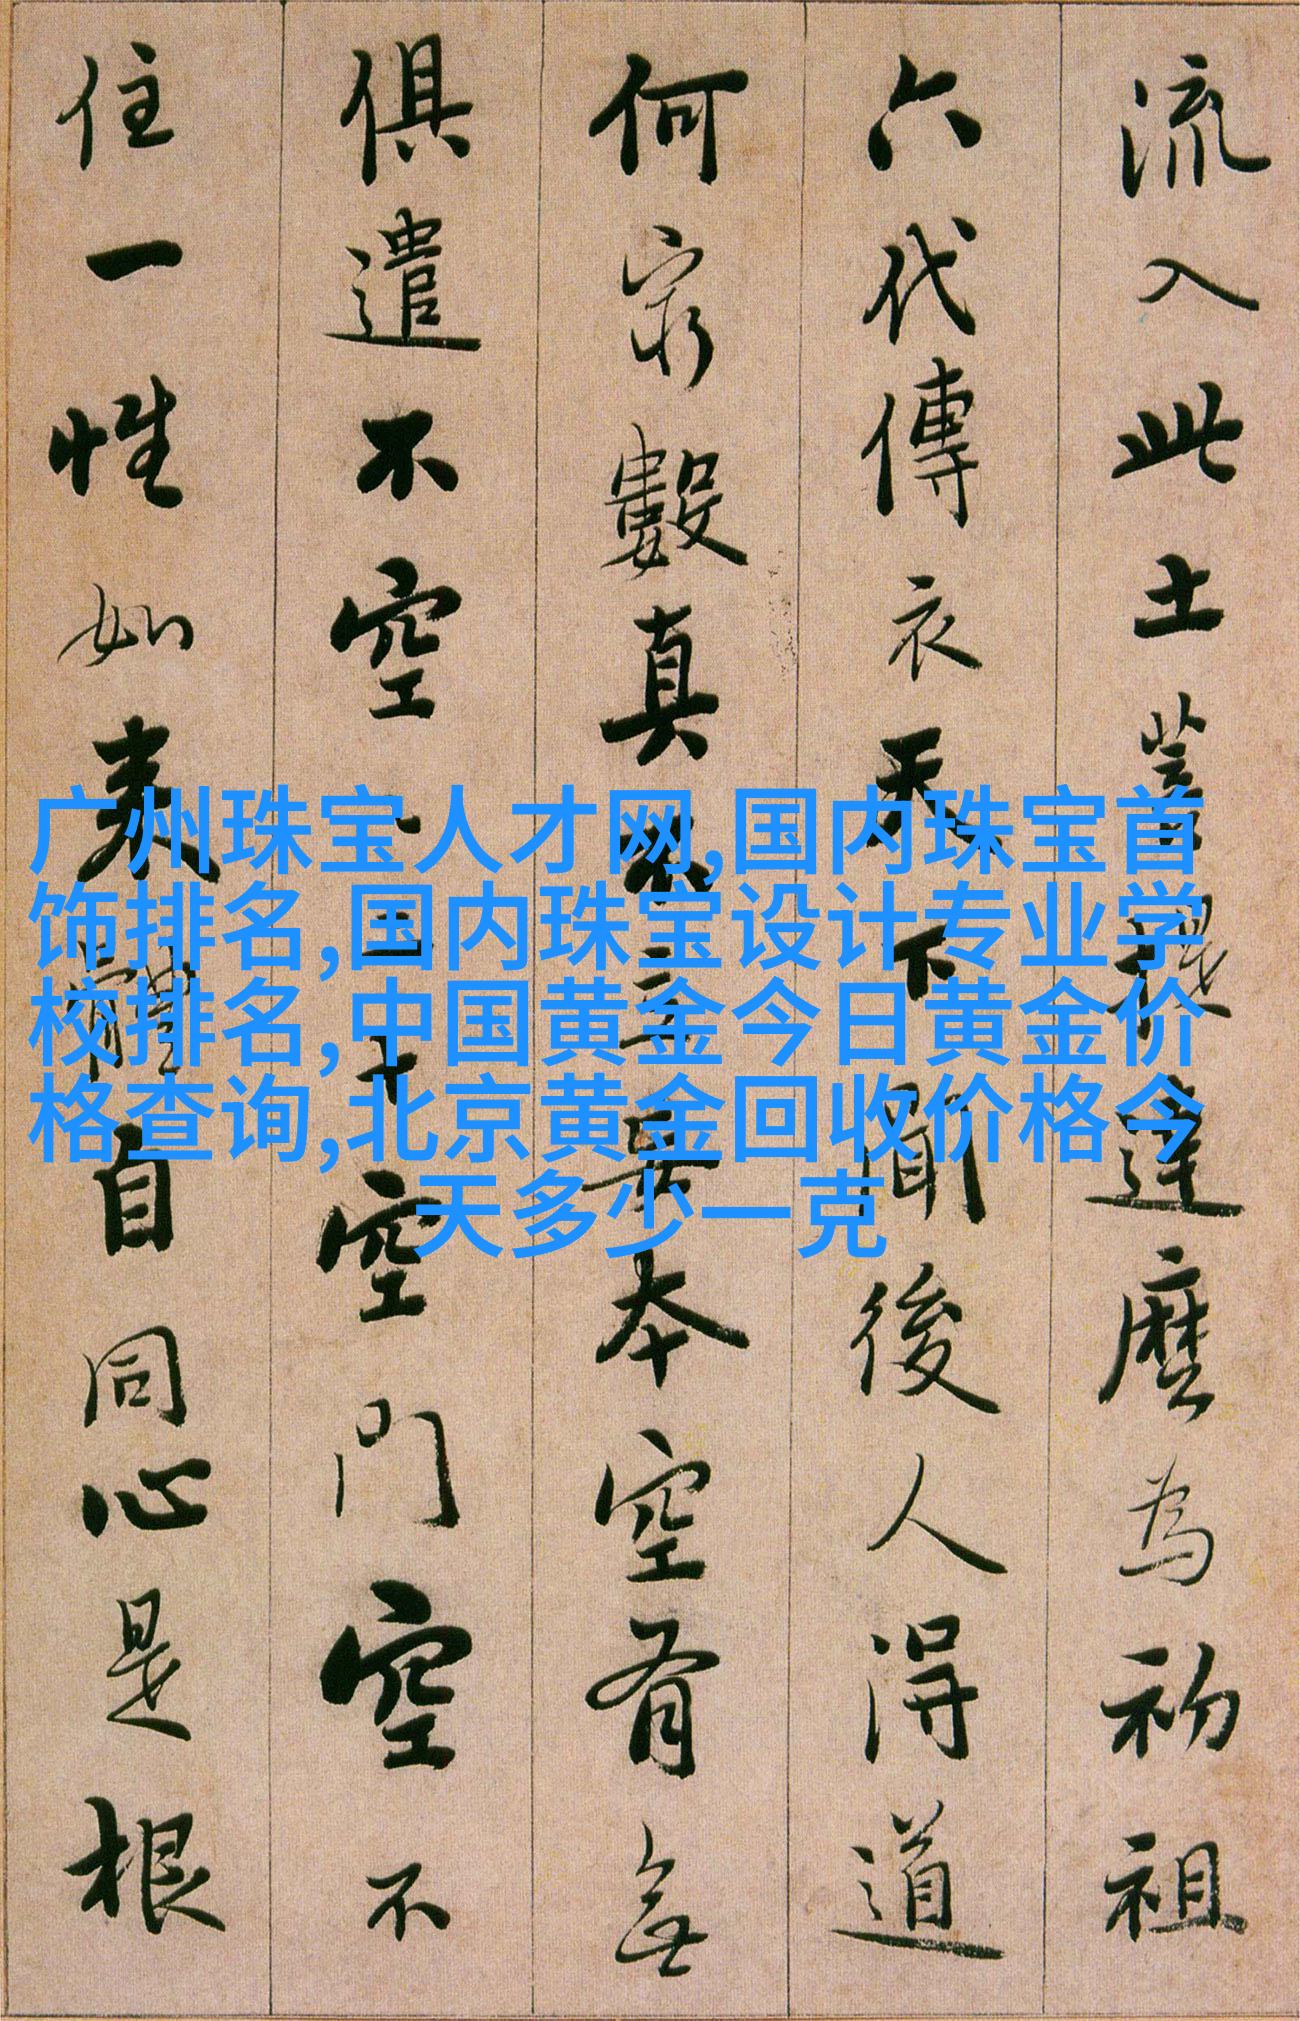 流入此土菩提達麼為初祖
六代傳衣天下聞後人得道
何窮數真不立妄本空有無
俱遣不空空二十空門空不
住一性如来體自同心是根
广州珠宝人才网,国内珠宝首
饰排名,国内珠宝设计专业学
校排名,中国黄金今日黄金价
格查询,北京黄金回收价格今
天多少一克